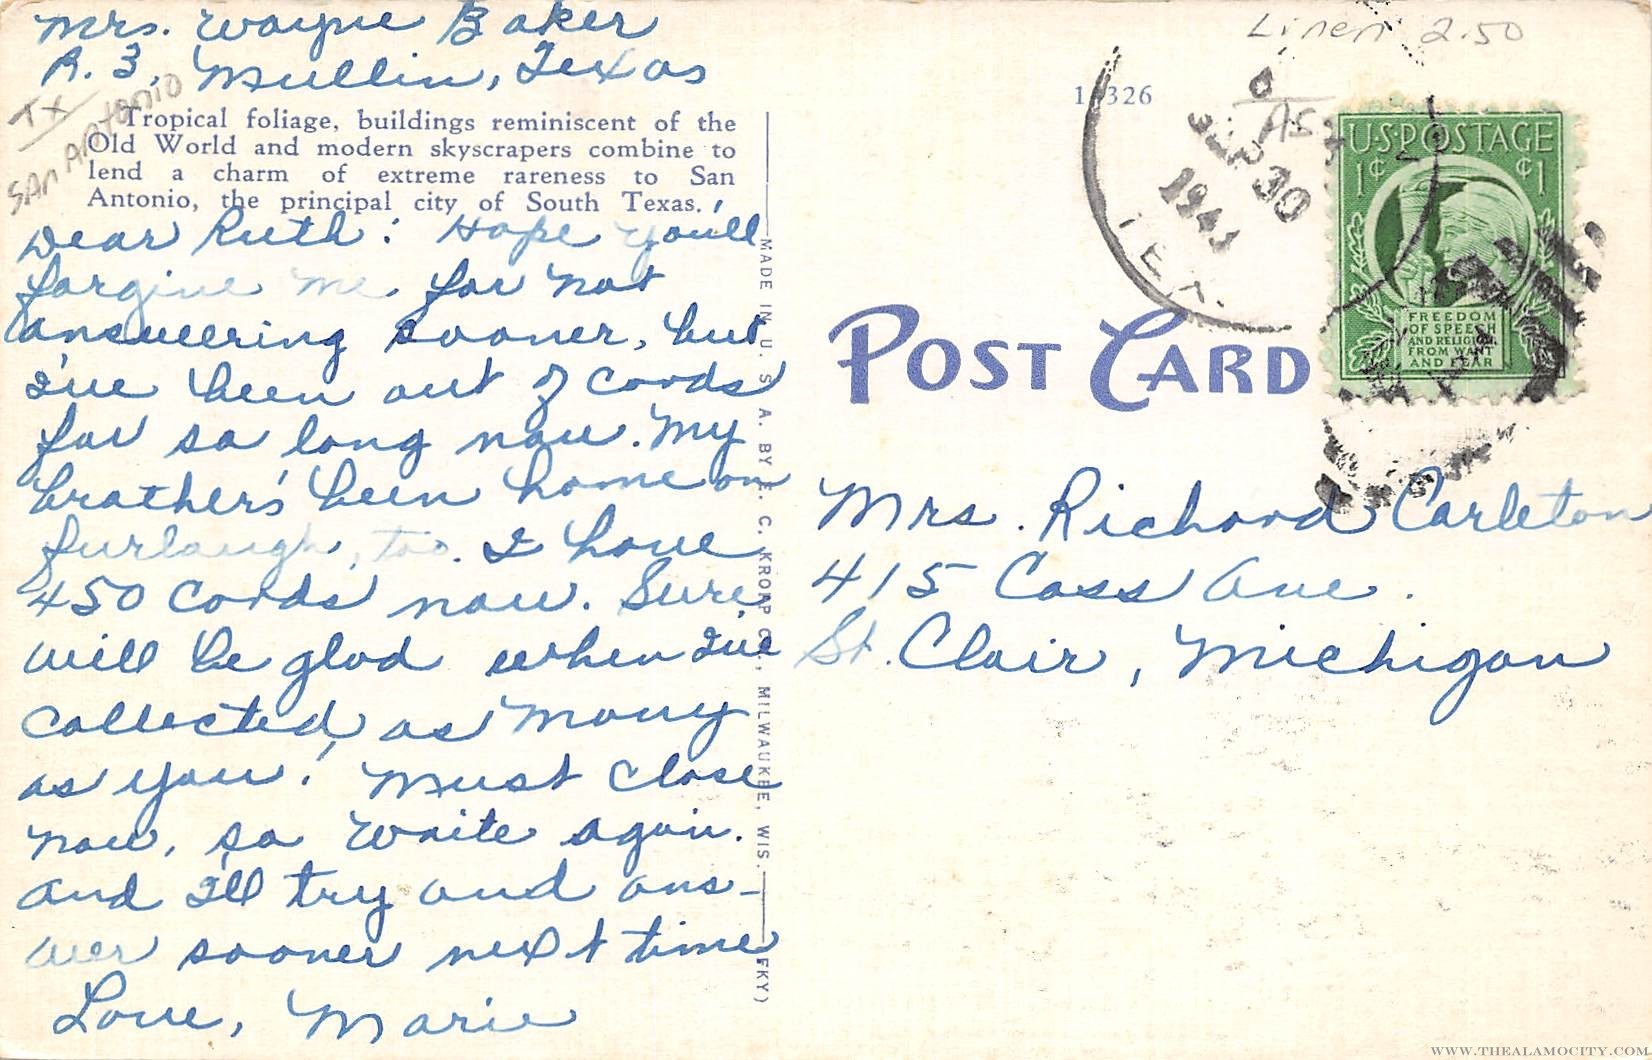 Mrs. Wayne Baker
R. 3, Mullin, Texas
TX
SAN ANTONIO
Tropical foliage, buildings reminiscent of the
Old World and modern skyscrapers combine to
lend a charm of extreme rareness to San
Antonio, the principal city of South Texas.
Dear Ruth: Hope you'll
forgive me for not
answering sooner, but
I've been out of cards
for so long now. My
brother's been home on
furlough, too. I have
450 cards now. Sure
will be glad when I've
collected as many
as you! Must close
now, so write again.
and I'll try and ans-
wer sooner next time
Love, Marie
MADE IN U. S. A. BY E. C. KROPP CO., MILWAUKEE, WIS.
Linen 2.50
SEP 30
TEX.
U.S. POSTAGE
1¢ ¢1
FREEDOM
OF SPEECH
AND RELIGION
FROM WANT
AND FEAR
POST CARD
Mrs. Richard Carleton
415 Cass Ave.
St. Clair, Michigan
WWW.THEALAMOCITY.COM